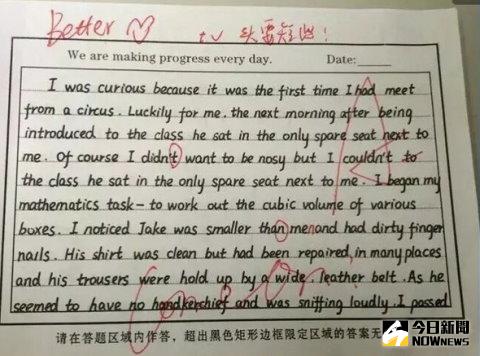 Better
We are making progress every day. Date:
I was curious because it was the first time I had meet
from a circus. Luckily for me. the next morning after being
introduced to the class he sat in the only spare seat next to
me. Of course I didn't want to be nosy but I couldn't to
the class he sat in the only spare seat next to me. I began my
mathematics task- to work out the cubic volume of various
boxes. I noticed Jake was smaller than me and had dirty finger
nails. His shirt was clean but had been repaired, in many places
and his trousers were hold up by a wide. leather belt. As he
seemed to have no handkerchief and was sniffing loudly. I passed
请在答题区域内作答，超出黑色矩形边框限定区域的答案无
今日新聞
NOWNEWS